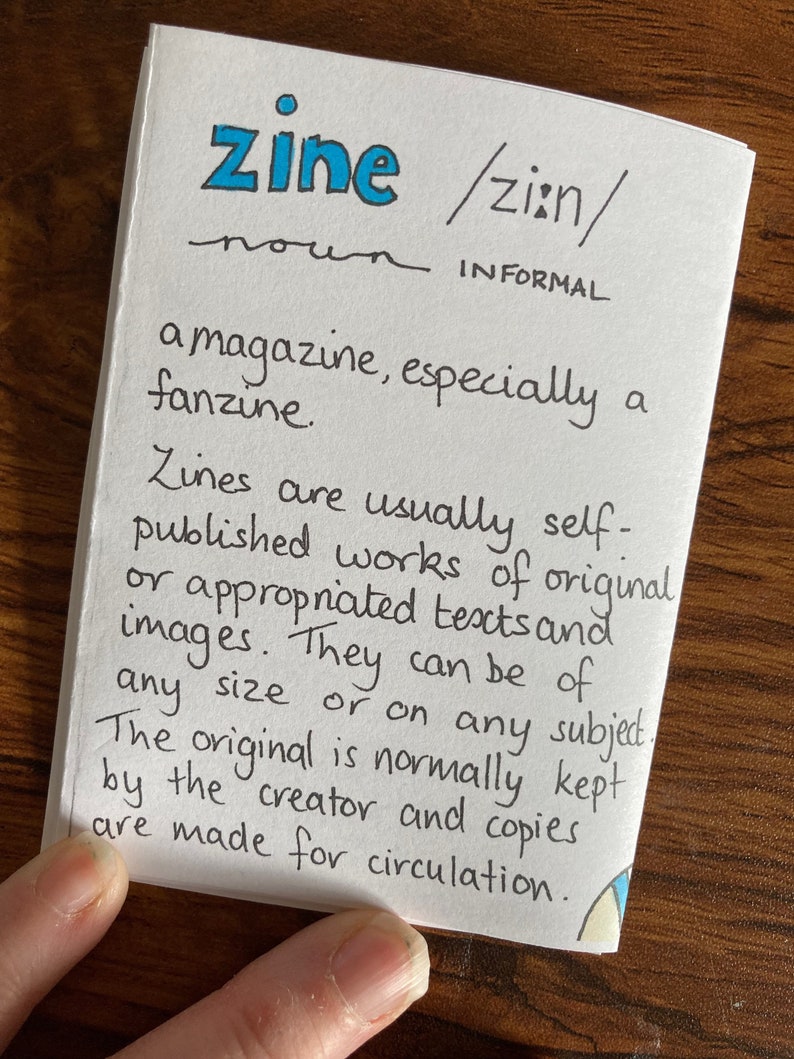 zine /zi:n/
noun INFORMAL
a magazine, especially a
fanzine.
Zines are usually self-
published works of original
or appropriated texts and
images. They can be of
any size or on any subject.
The original is normally kept
by the creator and copies
are made for circulation.